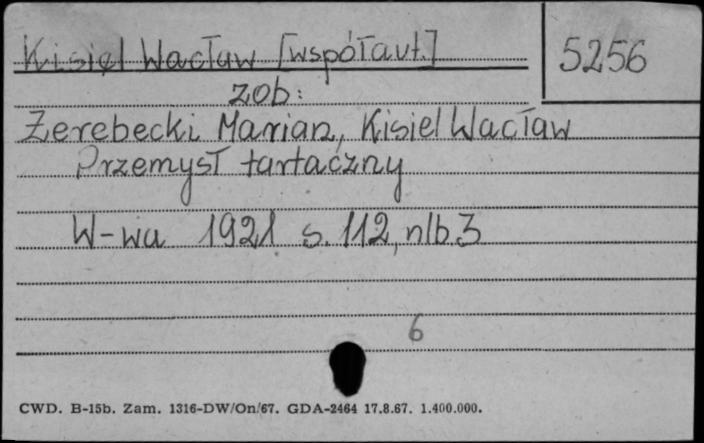 Kisiel Wacław [współaut.]
5256
zob:
Żerebecki Marian, Kisiel Wacław
Przemysł tartaczny
W-wa 1921 s. 112, nlb. 3
6
CWD. B-15b. Zam. 1316-DW/On/67. GDA-2464 17.8.67. 1.400.000.